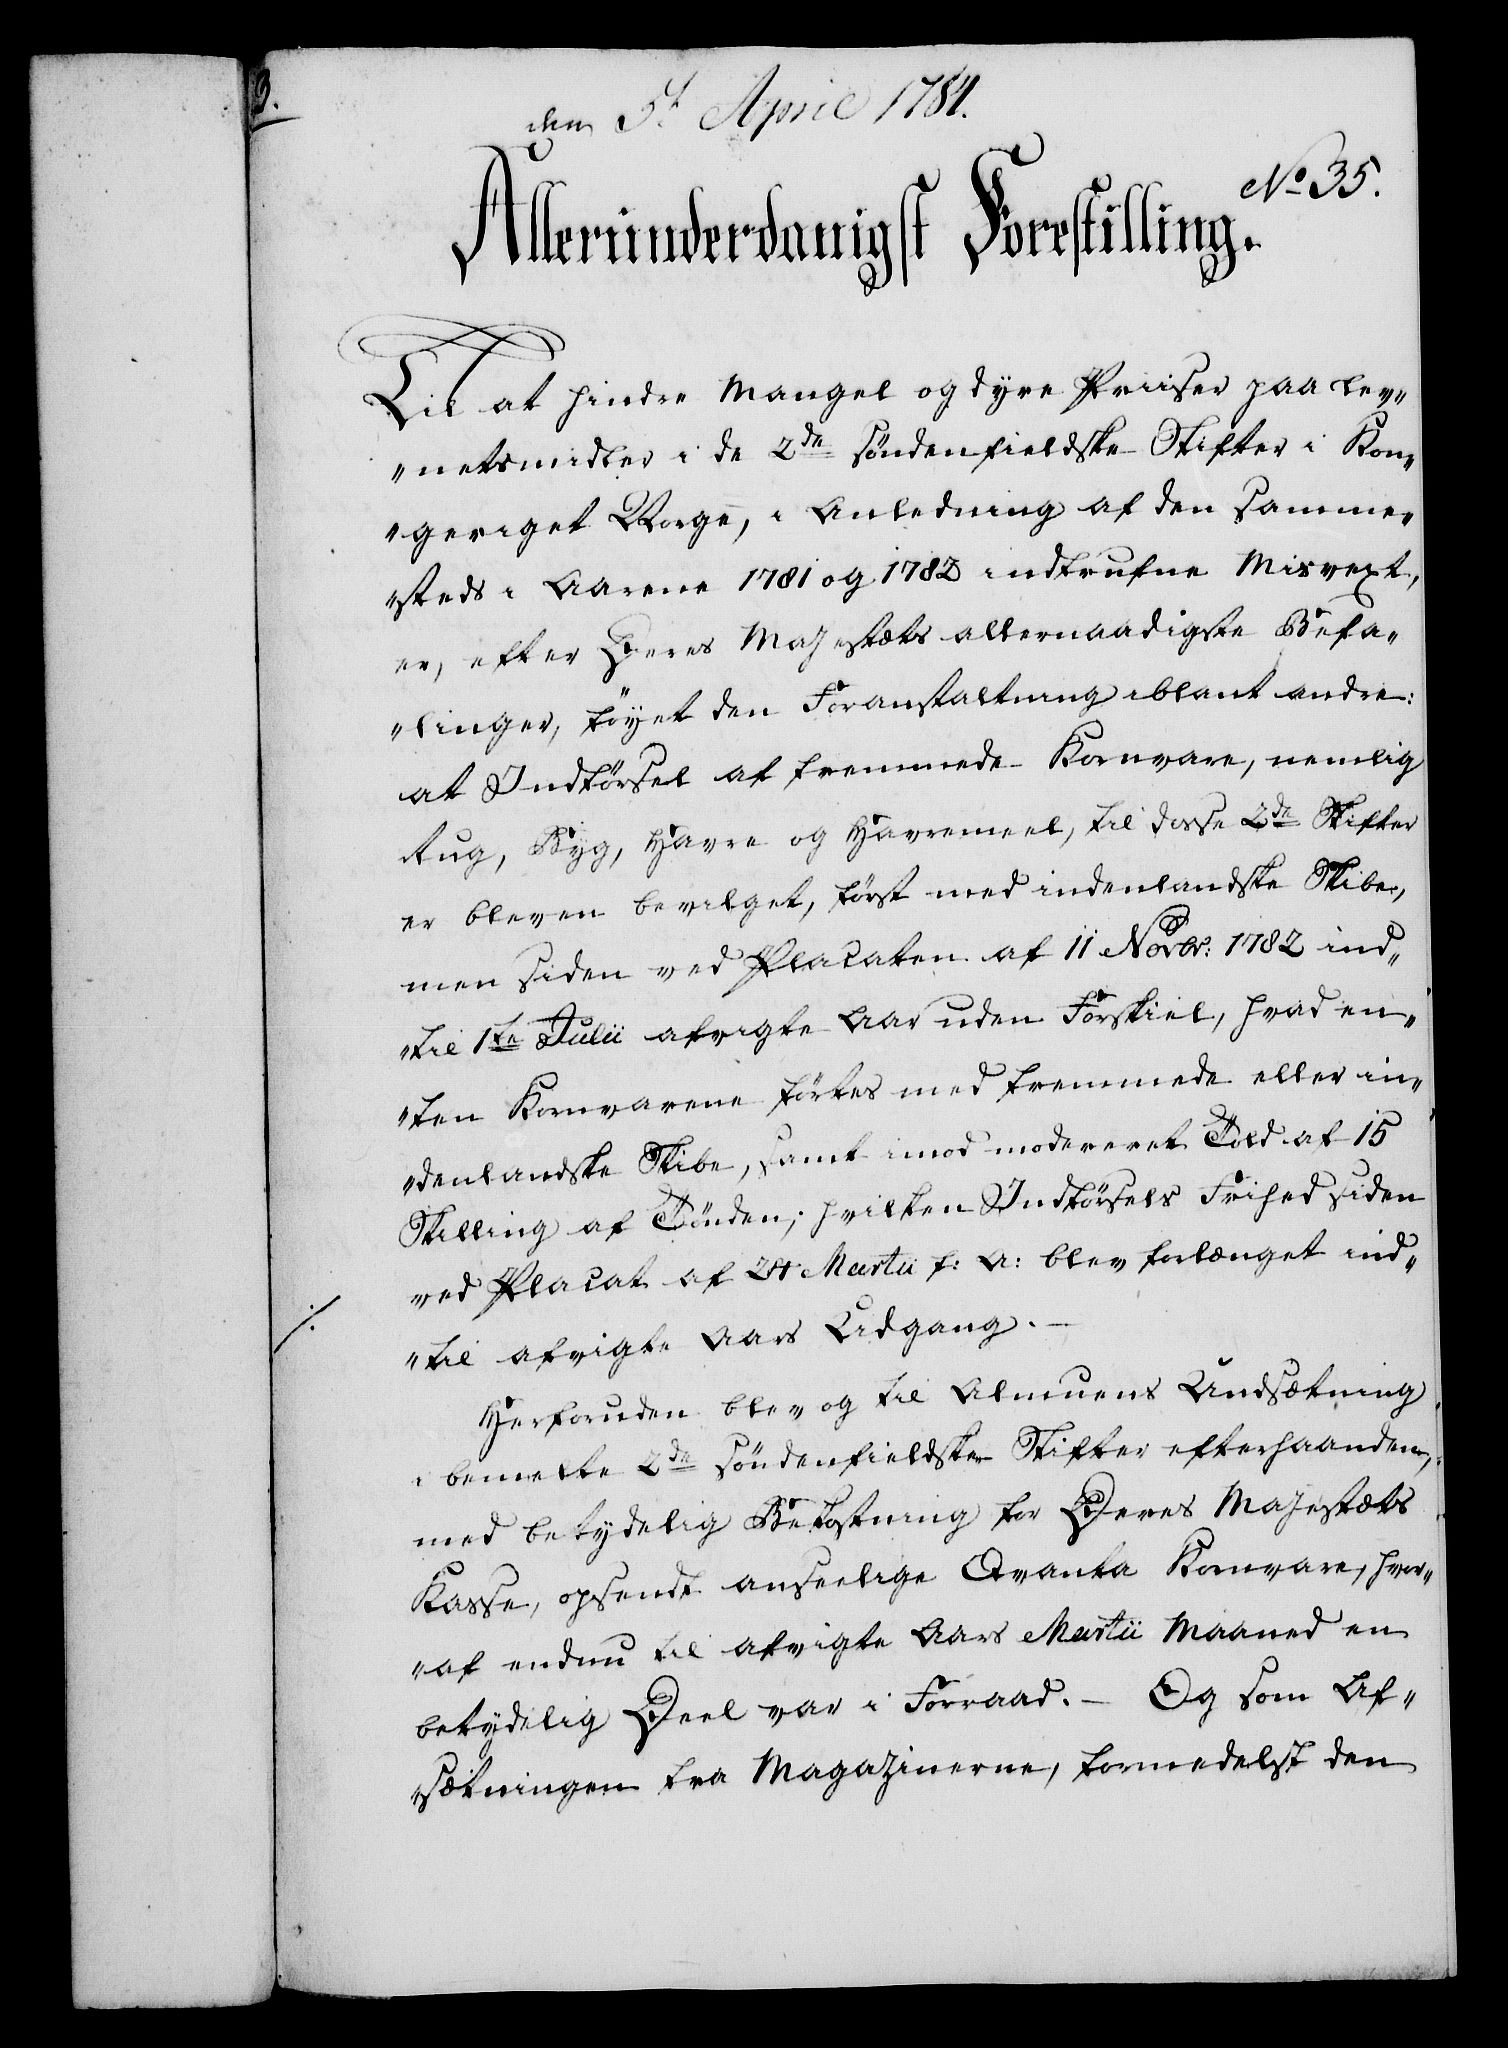 den 5t April 1784.
No 35.
Alleründerdanigst Forestilling.
Til at hindre Mangel og dyre Priiser paa Lev„
„netsmidler i de 2de Søndenfieldske Stifter i Kon„
„geriget Norge, i Anledning af den samme„
„steds i Aarene 1781 og 1782 indtrufne Misvext,
er, efter Deres Majestæts allernaadigste Befa„
„linger, føyet den Foranstaltning iblant andre:
at Indførsel af fremmede Kornvare, nemlig
Rug, Byg, Havre og Havremeel, til disse 2de Stifter
er bleven bevilget, først med indenlandske Skibe,
men siden ved Placaten af 11 Novbr: 1782 ind„
„til 1te Julii afvigte Aar uden Forskiel, hvad en„
„ten Kornvarene førtes med fremmede eller in„
„denlandske Skibe, samt imod modereret Told af 15
Skilling af Tönden; hvilken Indførsels Frihed siden
ved Placat af 24 Martii f: A: blev forlænget ind„
„til afvigte Aars Udgang. —
Herforuden blev og til Almuens Undsætning
i bemelte 2de Søndenfieldske Stifter efterhaanden,
med betydelig Bekostning for Deres Majestæts
Kasse, opsendt anseelige Qvanta Kornvare, hvor„
„af endnu til afvigte Aars Martii Maaned en
betydelig Deel var i Forraad. — Og som Af„
„sætningen fra Magazinerne, formedelst den